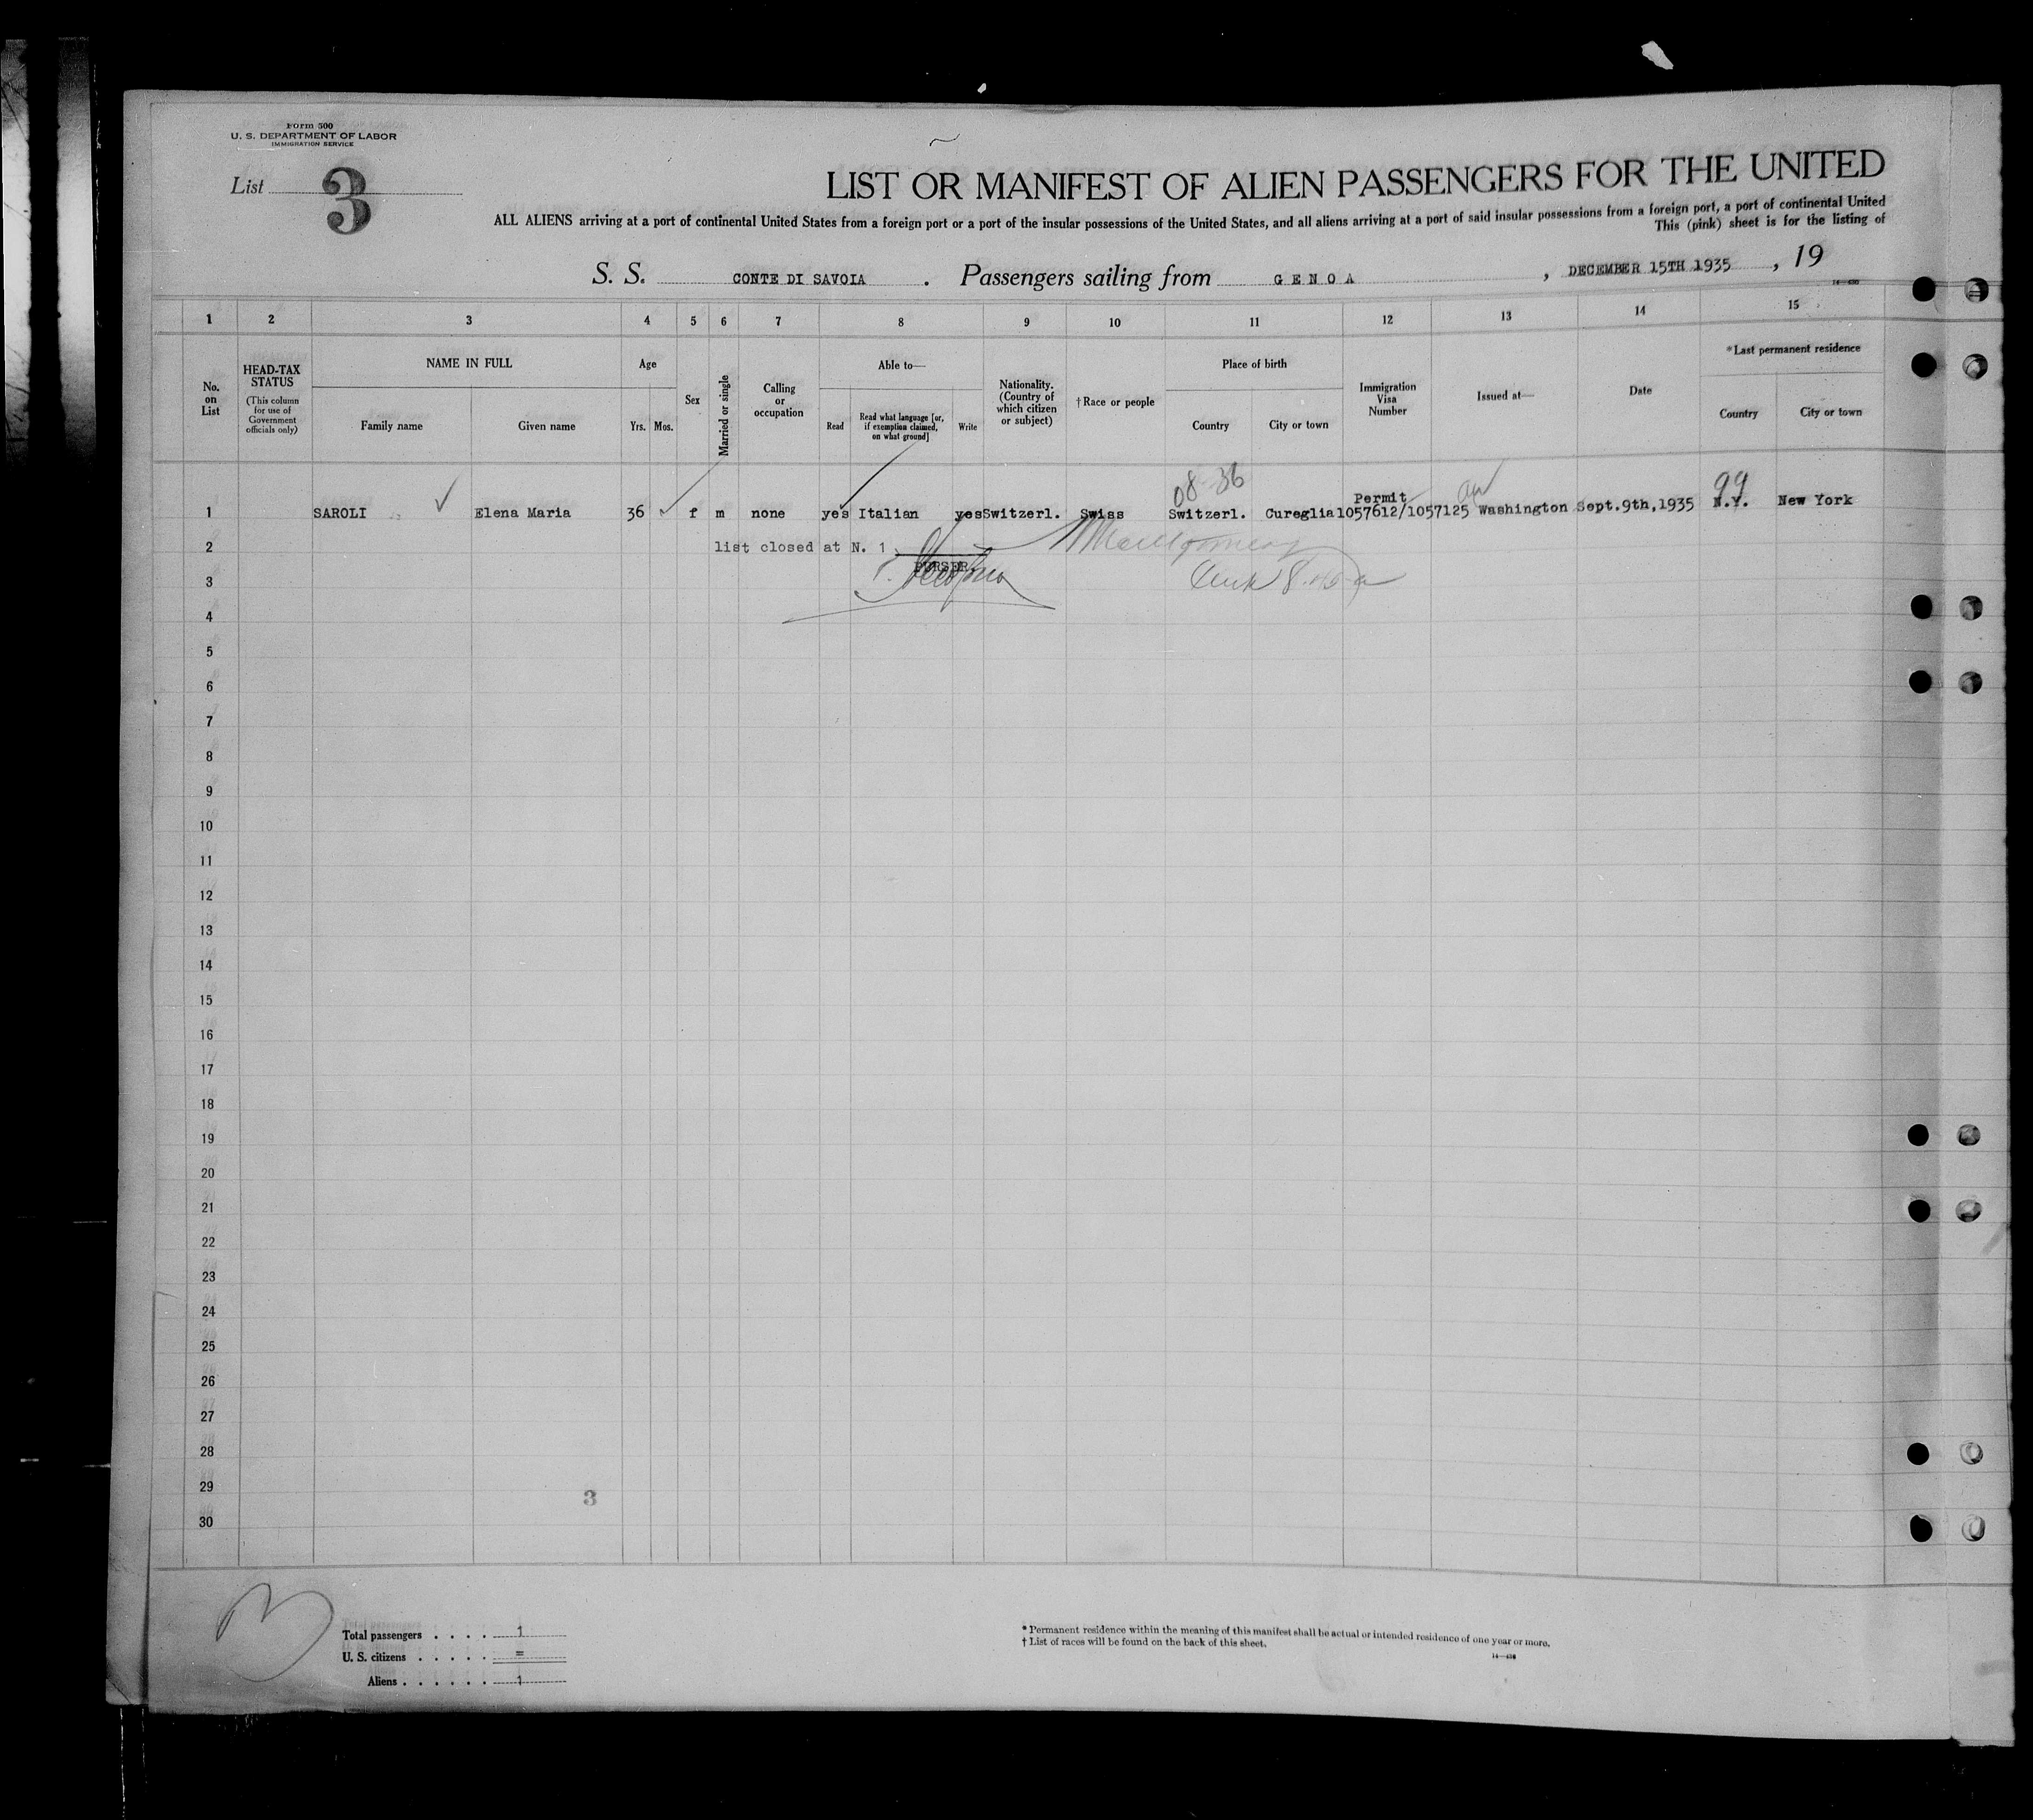 Form 500
U. S. DEPARTMENT OF LABOR
IMMIGRATION SERVICE
List 3
LIST OR MANIFEST OF ALIEN PASSENGERS FOR THE UNITED
ALL ALIENS arriving at a port of continental United States from a foreign port or a port of the insular possessions of the United States, and all aliens arriving at a port of said insular possessions from a foreign port, a port of continental United
This (pink) sheet is for the listing of
S. S. CONTE DI SAVOIA . Passengers sailing from GENOA , DECEMBER 15TH 1935 , 19
1 2 3 4 5 6 7 8 9 10 11 12 13 14 15
No. on List
HEAD-TAX STATUS
(This column for use of Government officials only)
NAME IN FULL
Family name
Given name
Age
Yrs. Mos.
Sex
Married or single
Calling or occupation
Able to—
Read
Read what language [or, if exemption claimed, on what ground]
Write
Nationality. (Country of which citizen or subject)
†Race or people
Place of birth
Country
City or town
Immigration Visa Number
Issued at—
Date
*Last permanent residence
Country
City or town
08-36
99
Permit
1 SAROLI Elena Maria 36 f m none yes Italian yes Switzerl. Swiss Switzerl. Cureglia 1057612/1057125 Washington Sept.9th,1935 N.Y. New York
2 list closed at N. 1
PURSER
3
4
5
6
7
8
9
10
11
12
13
14
15
16
17
18
19
20
21
22
23
24
25
26
27
28
29
3
30
3
Total passengers . . . . 1
U. S. citizens . . . . . =
Aliens . . . . . . 1
* Permanent residence within the meaning of this manifest shall be actual or intended residence of one year or more.
† List of races will be found on the back of this sheet.